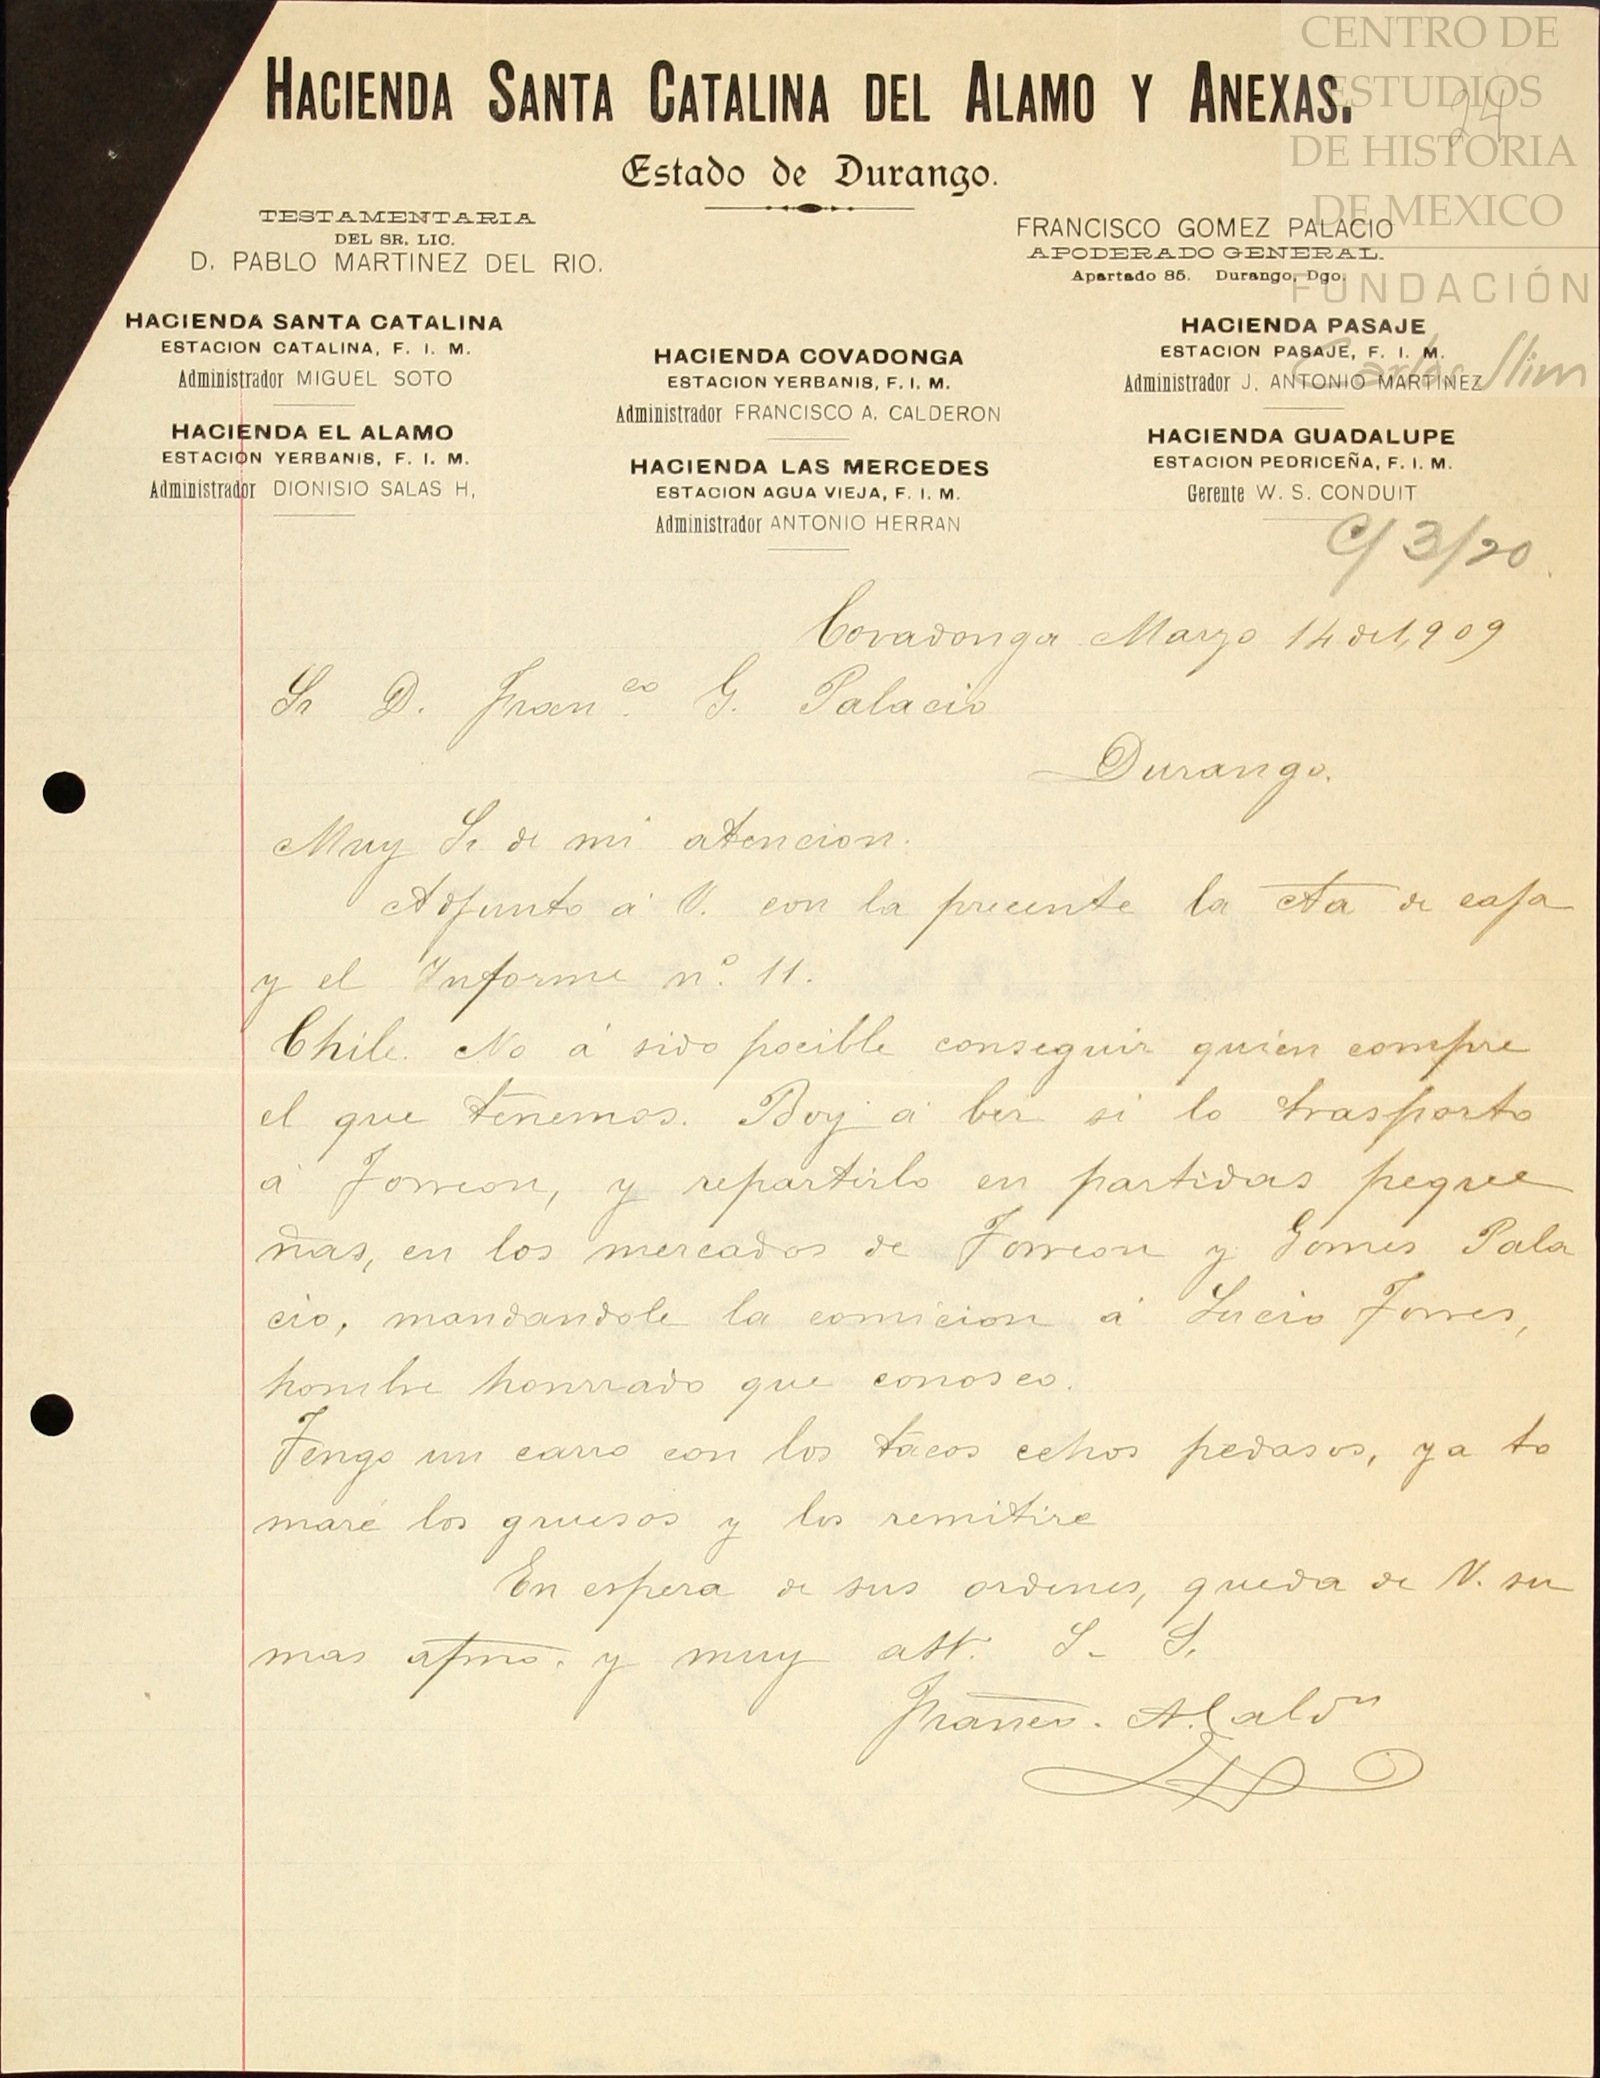 CENTRO DE
ESTUDIOS
DE HISTORIA
DE MEXICO
FUNDACIÓN
Carlos Slim
24
HACIENDA SANTA CATALINA DEL ALAMO Y ANEXAS.
Estado de Durango.
TESTAMENTARIA
DEL SR. LIC.
D. PABLO MARTINEZ DEL RIO.
FRANCISCO GOMEZ PALACIO
APODERADO GENERAL.
Apartado 85. Durango, Dgo.
HACIENDA SANTA CATALINA
ESTACION CATALINA, F. I. M.
Administrador MIGUEL SOTO
HACIENDA EL ALAMO
ESTACION YERBANIS, F. I. M.
Administrador DIONISIO SALAS H,
HACIENDA COVADONGA
ESTACION YERBANIS, F. I. M.
Administrador FRANCISCO A. CALDERON
HACIENDA LAS MERCEDES
ESTACION AGUA VIEJA, F. I. M.
Administrador ANTONIO HERRAN
HACIENDA PASAJE
ESTACION PASAJE, F. I. M.
Administrador J. ANTONIO MARTINEZ
HACIENDA GUADALUPE
ESTACION PEDRICEÑA, F. I. M.
Gerente W. S. CONDUIT
C/ 3/20
Covadonga Marzo 14 de 1,909
Sr D. Franco. G. Palacio
Durango.
Muy Sr de mi atencion.
Adjunto á V. con la precente la cta de caja
y el Informe no. 11.
Chile. No á sido pocible conseguir quien compre
el que tenemos. Boy á ber si lo trasporto
á Torreon, y repartirlo en partidas peque
ñas, en los mercados de Torreon y Gomes Pala
cio, mandandole la comicion á Lucio Torres,
hombre honrrado que conosco.
Tengo un carro con los tacos echos pedasos, ya to
maré los gruesos y los remitire
En espera de sus ordenes, queda de V. su
mas afmo. y muy att. S. S.
Franco. A. Caldn